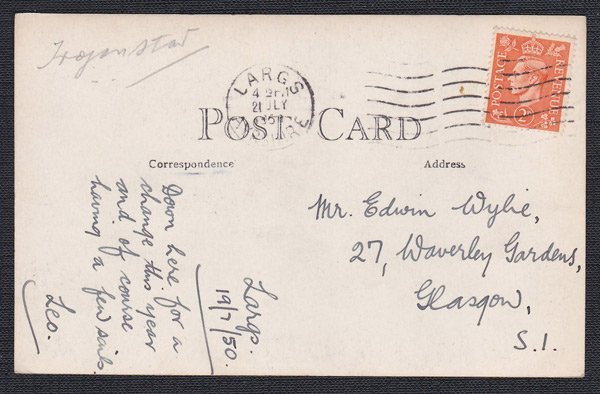 Trojan Star
LARGS
21 JLY
POSTAGE REVENUE
POST CARD
Correspondence
Address
Largs.
19/7/50.
Down here for a
change this year
and of course
having a few sails.
Leo.
Mr. Edwin Wylie,
27, Waverley Gardens,
Glasgow,
S.1.